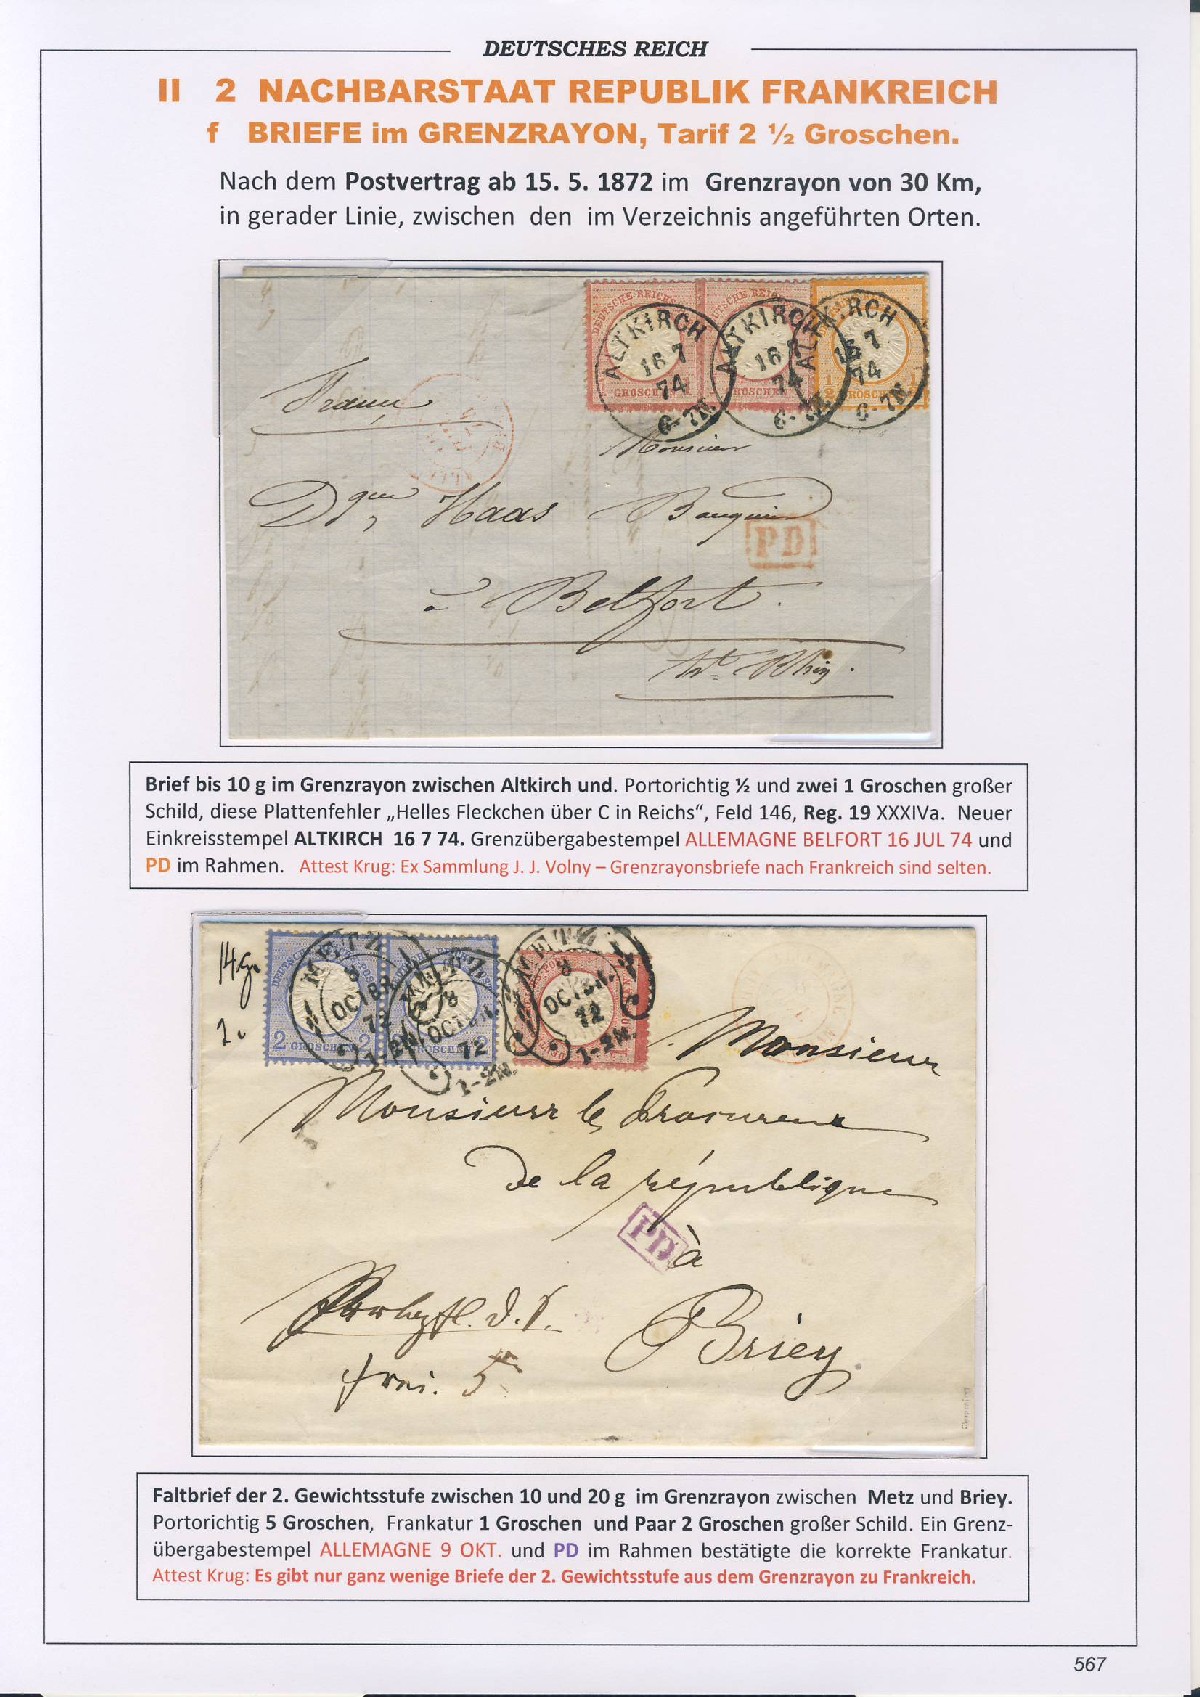 DEUTSCHES REICH
II 2 NACHBARSTAAT REPUBLIK FRANKREICH
f BRIEFE im GRENZRAYON, Tarif 2 ½ Groschen.
Nach dem Postvertrag ab 15. 5. 1872 im Grenzrayon von 30 Km,
in gerader Linie, zwischen den im Verzeichnis angeführten Orten.
ALTKIRCH
16 7
74
6-7N.
ALTKIRCH
16 7
74
6-7N.
ALTKIRCH
16 7
74
6-7N.
GROSCHEN
Monsieur
Dque Haas Banquier
PD
à Belfort.
Ht Rhin.
Brief bis 10 g im Grenzrayon zwischen Altkirch und. Portorichtig ½ und zwei 1 Groschen großer
Schild, diese Plattenfehler „Helles Fleckchen über C in Reichs“, Feld 146, Reg. 19 XXXIVa. Neuer
Einkreisstempel ALTKIRCH 16 7 74. Grenzübergabestempel ALLEMAGNE BELFORT 16 JUL 74 und
PD im Rahmen. Attest Krug: Ex Sammlung J. J. Volny – Grenzrayonsbriefe nach Frankreich sind selten.
14 gr
2.
METZ
8
OCTBR.
72
1-2N.
2 GROSCHEN 2
METZ
8
72
1-2N.
METZ
8
OCTBR.
72
1-2N.
Monsieur
Monsieur le Procureur
de la république
PD
à
Briey
frei. 5
Faltbrief der 2. Gewichtsstufe zwischen 10 und 20 g im Grenzrayon zwischen Metz und Briey.
Portorichtig 5 Groschen, Frankatur 1 Groschen und Paar 2 Groschen großer Schild. Ein Grenz-
übergabestempel ALLEMAGNE 9 OKT. und PD im Rahmen bestätigte die korrekte Frankatur.
Attest Krug: Es gibt nur ganz wenige Briefe der 2. Gewichtsstufe aus dem Grenzrayon zu Frankreich.
567